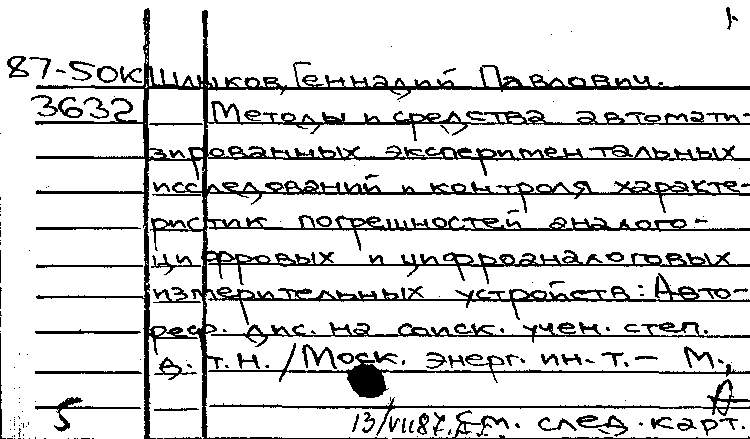 1.
87-50К Шлыков, Геннадий Павлович.
3632 Методы и средства автомати-
зированных экспериментальных
исследований и контроля характе-
ристик погрешностей аналого-
цифровых и цифроаналоговых
измерительных устройств: Авто-
реф. дис. на соиск. учен. степ.
д. т. н. / Моск. энерг. ин-т. - М.,
5
13/VII87. см. след. карт.